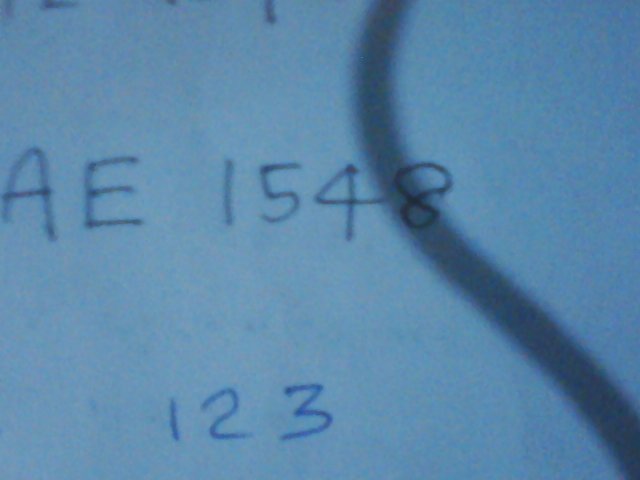 AE 1548
123